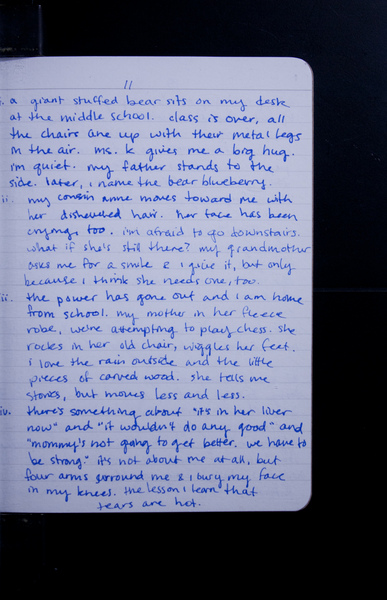 11
i. a giant stuffed bear sits on my desk
at the middle school. class is over, all
the chairs are up with their metal legs
in the air. ms. k gives me a big hug.
i'm quiet. my father stands to the
side. later, i name the bear blueberry.
ii. my cousin anne moves toward me with
her disheveled hair. her face has been
crying, too. i'm afraid to go downstairs.
what if she's still there? my grandmother
asks me for a smile & i give it, but only
because i think she needs one, too.
iii. the power has gone out and i am home
from school. my mother in her fleece
robe, we're attempting to play chess. she
rocks in her old chair, wiggles her feet.
i love the rain outside and the little
pieces of carved wood. she tells me
stories, but moves less and less.
iv. there's something about "it's in her liver
now" and "it wouldn't do any good" and
"mommy's not going to get better. we have to
be strong." it's not about me at all, but
four arms surround me & i bury my face
in my knees. the lesson i learn that
tears are hot.